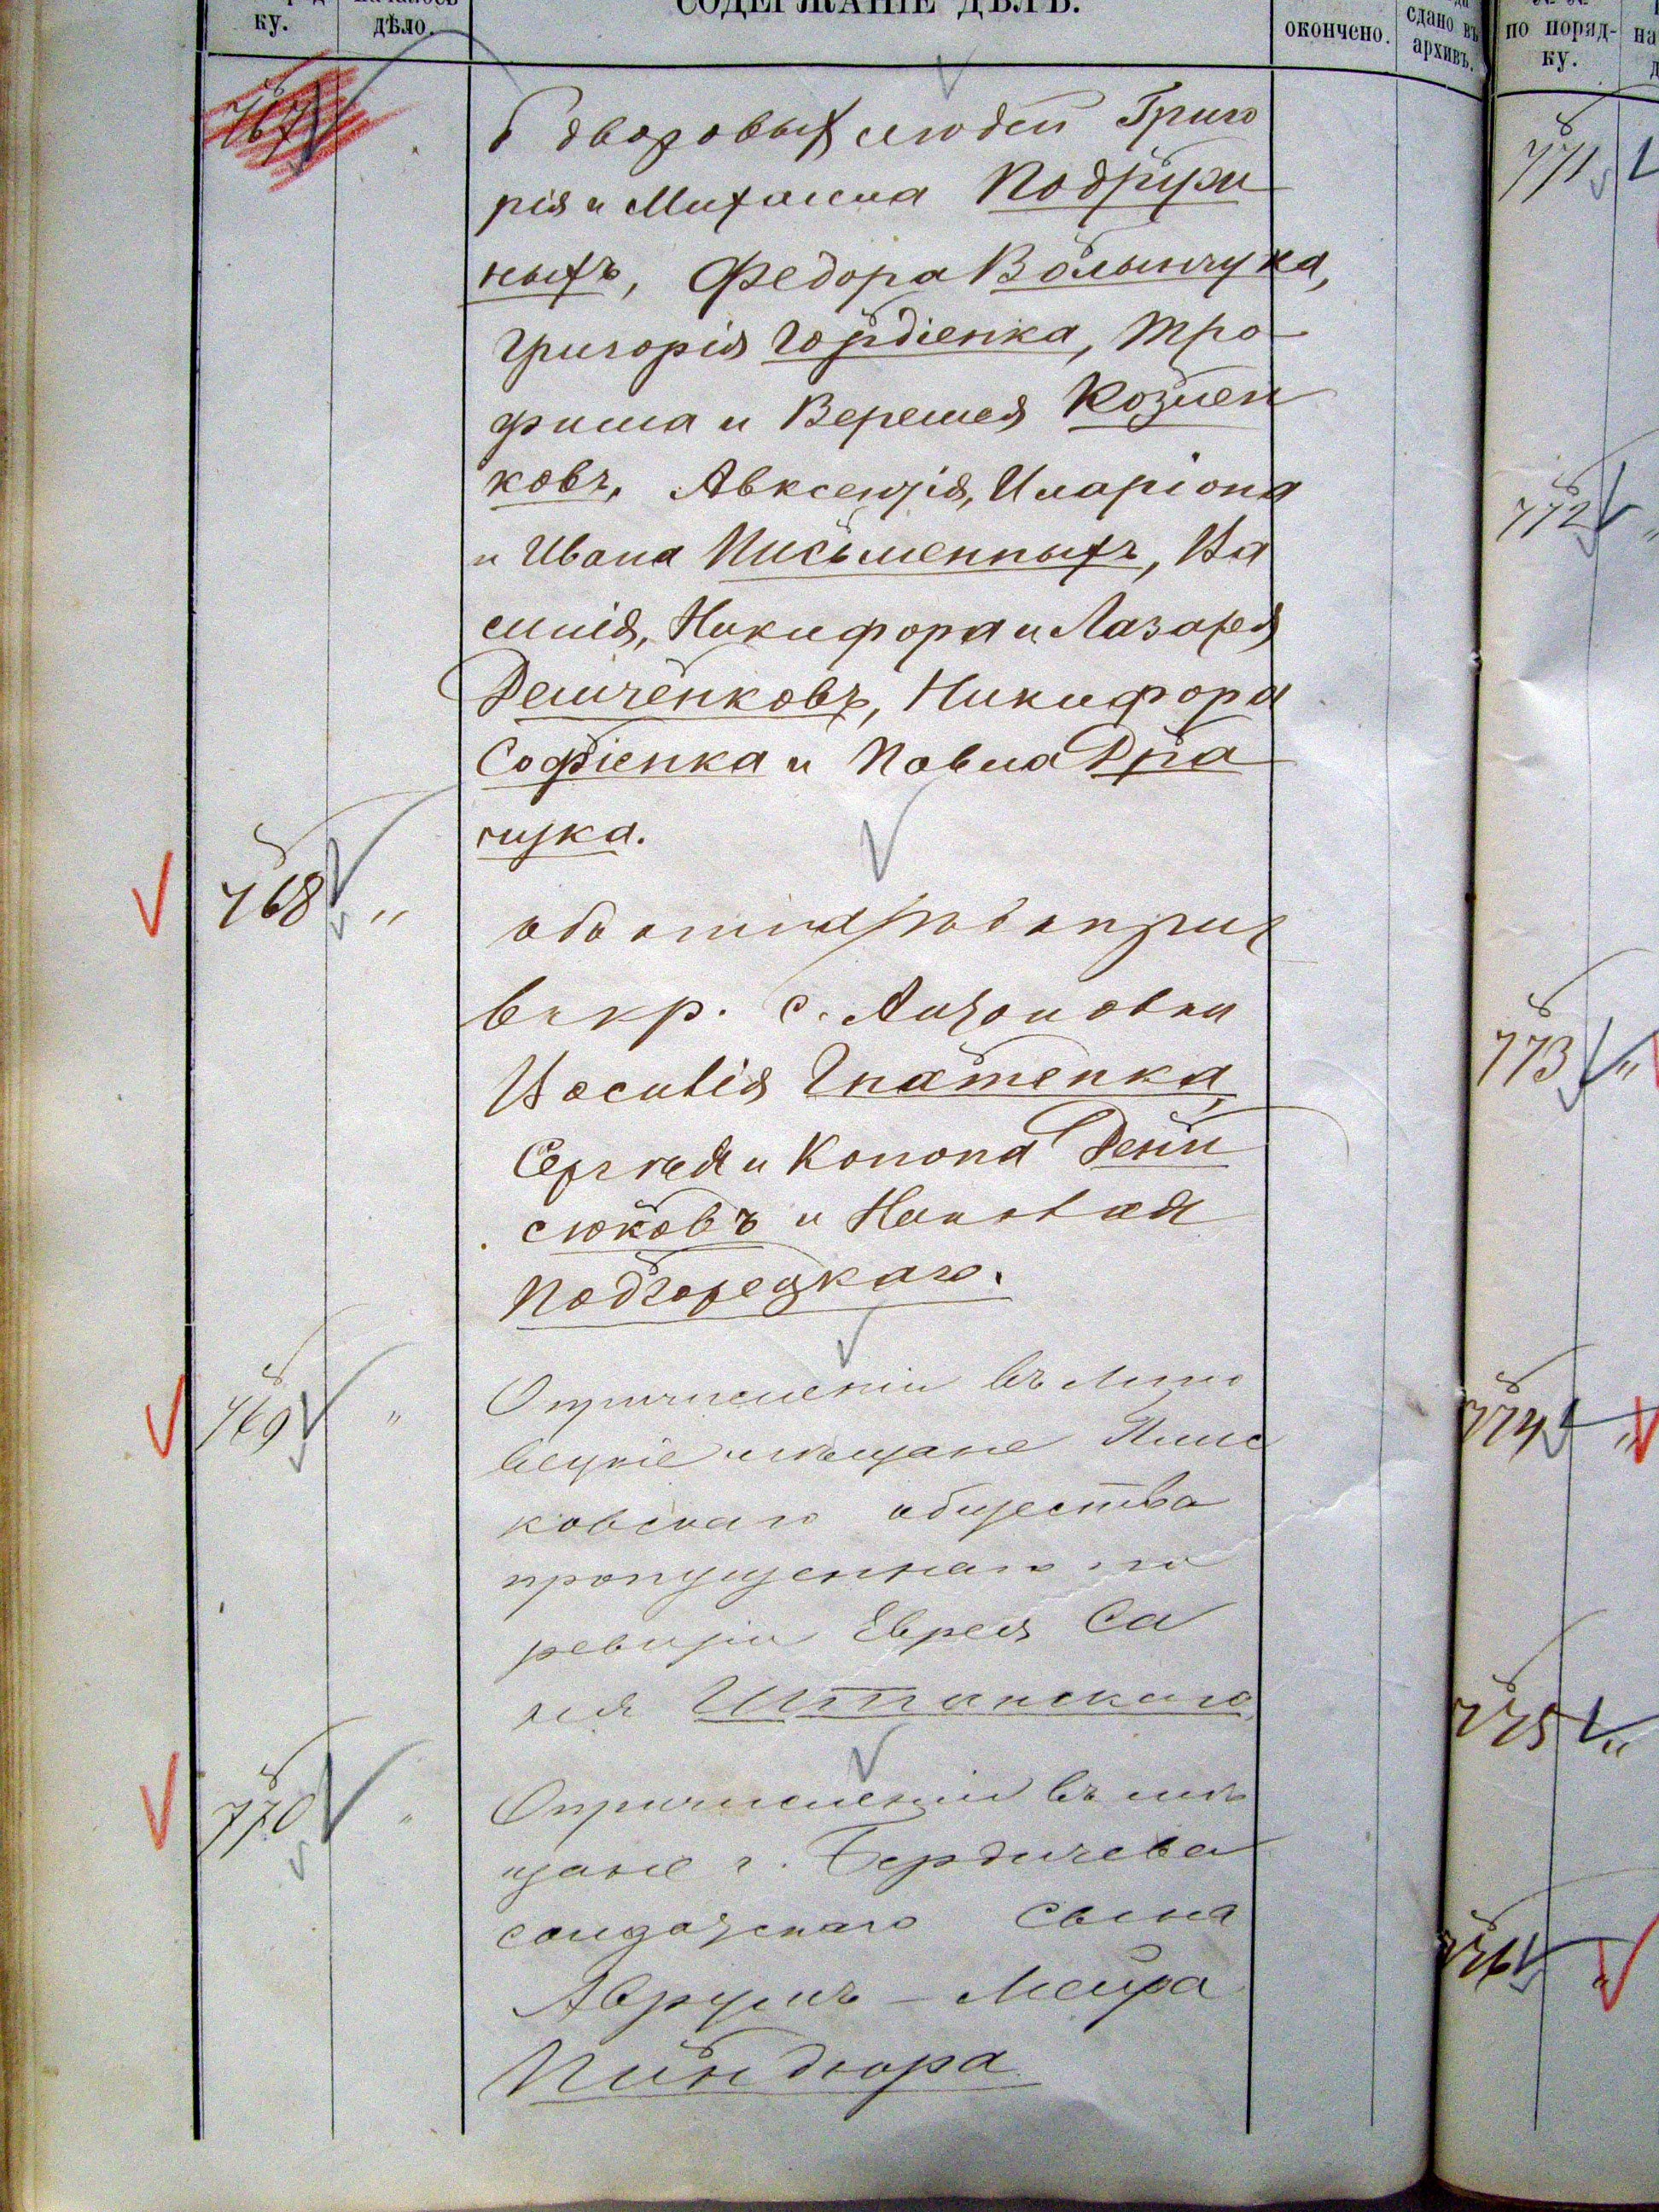 ку.
дѣло.
СОДЕРЖАНІЕ ДѢЛЪ.
окончено.
сдано въ
архивъ.
по поряд-
ку.
767
б дворовых людей Григо
рія и Михаила Подружи
ныхъ, Федора Волынчука,
Григорія Гордіенка, Тро-
фима и Веремея Козчен
ковъ, Авксентія, Иларіона
и Ивана Письменныхъ, Ва
силія, Никифора и Лазаря
Демченковъ, Никифора
Софіенка и Павла Дра
чука.
768 "
в кр. с. Антоновки
Василія Гнатенка,
Сергѣя и Конона Дени
сюковъ и Николая
Подгорецкаго.
769 "
О причисленіи въ Липо
вецкіе мѣщане
ковскаго общества
пропущеннаго по
ревизіи Еврея Са
Штанскаго
770 "
О причисленіи въ мѣ
щане г. Бердичева
солдатскаго сына
Аврумъ-Меира
Пиндюра
771
772 "
773 "
774 "
775 "
776 "